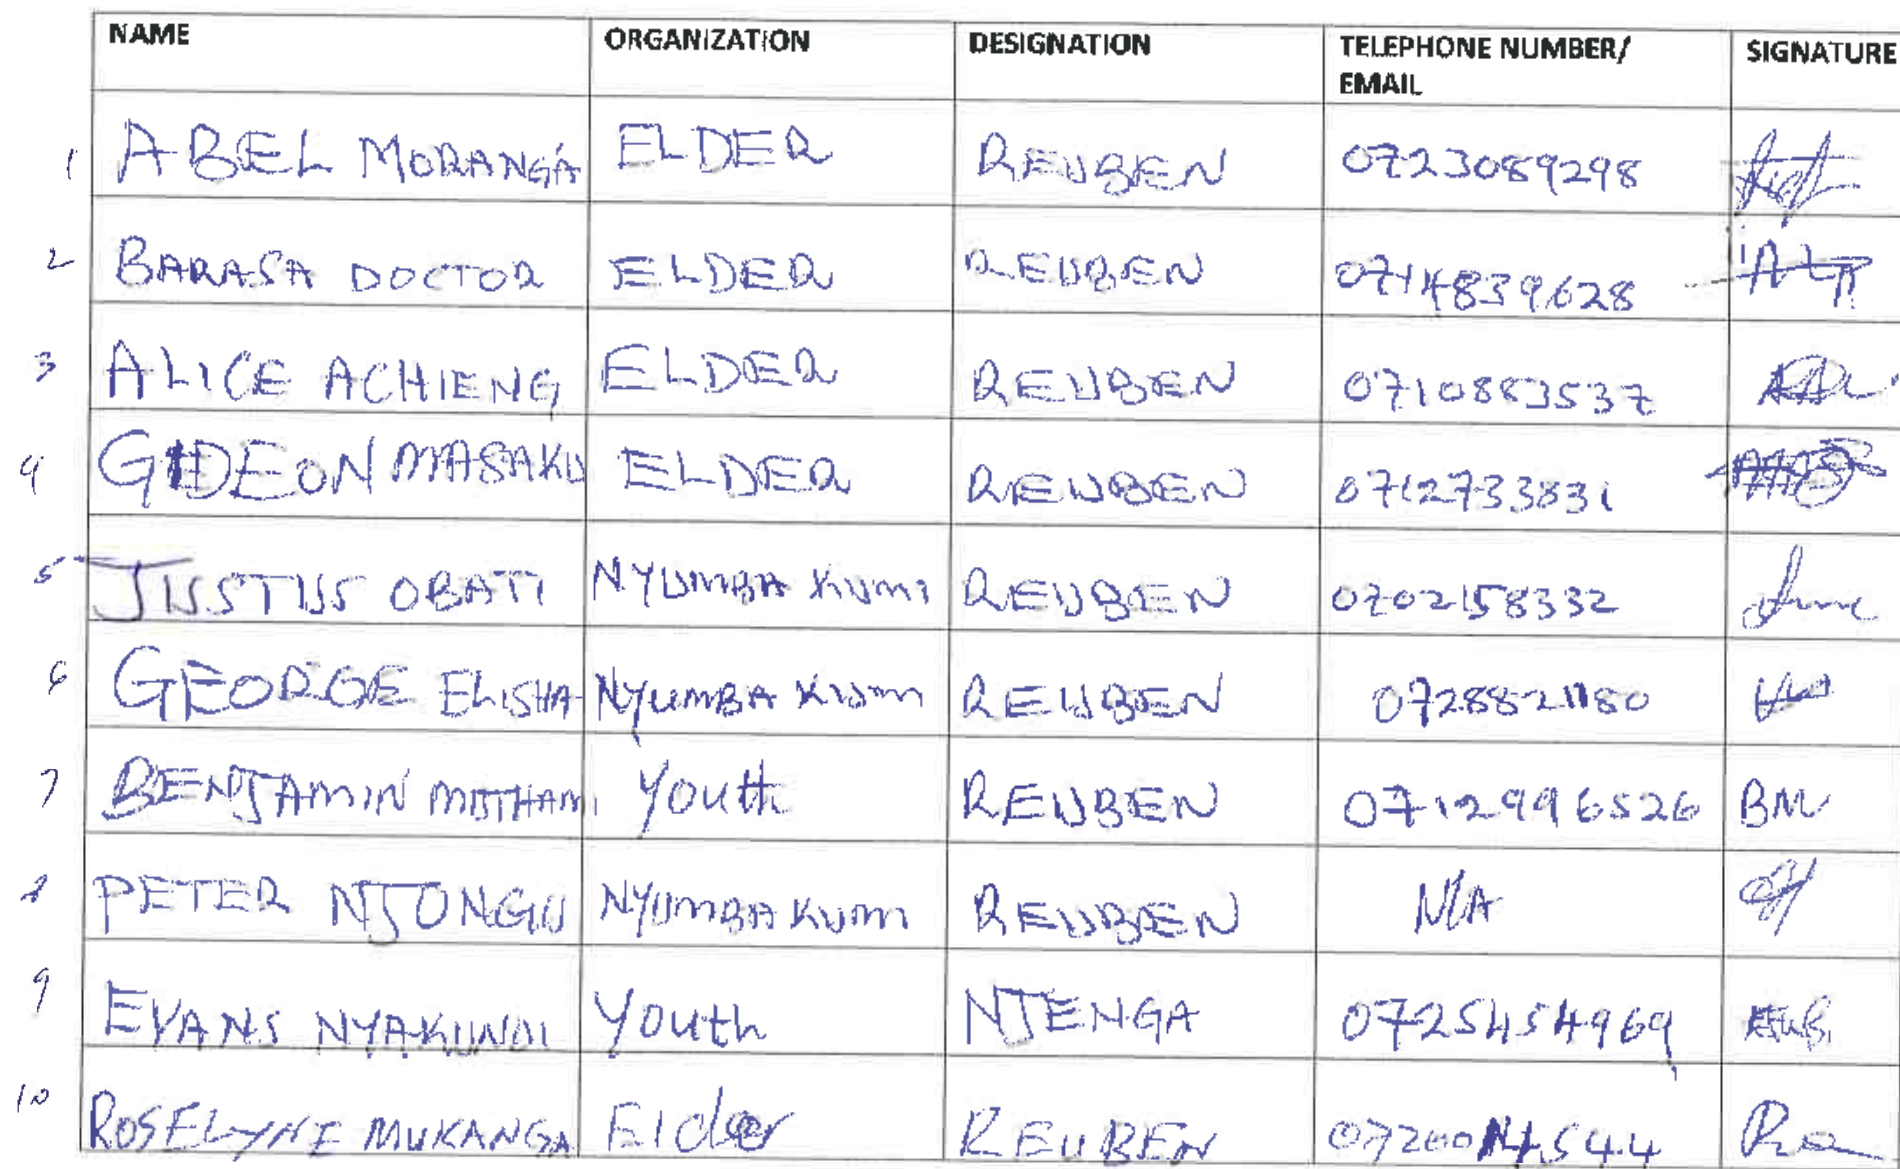 NAME ORGANIZATION DESIGNATION TELEPHONE NUMBER/ EMAIL SIGNATURE
1 ABEL MORANGA ELDER REUBEN 0723089298
2 BARASA DOCTOR ELDER REUBEN 0714839628
3 ALICE ACHIENG ELDER REUBEN 0710883537
4 GIDEON MASAKU ELDER REUBEN 0712733831
5 JUSTUS OBATI NYUMBA KUMI REUBEN 0702158332
6 GEORGE ELISHA NYUMBA KUMI REUBEN 0728821180
7 BENJAMIN MUTHAMI Youth REUBEN 0712996526 BM
8 PETER NJONGU NYUMBA KUMI REUBEN N/A
9 EVANS NYAKUNDI Youth NJENGA 0725454969
10 ROSELYNE MUKANGA Elder REUBEN